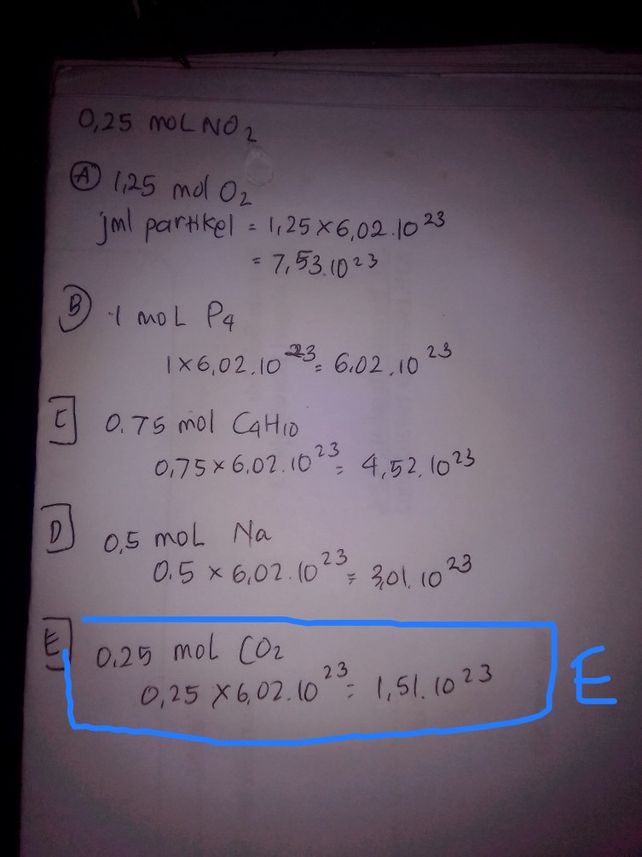 0,25 mol NO2
(A) 1,25 mol O2
jml partikel = 1,25 × 6,02.10^23
= 7,53.10^23
(B) 1 mol P4
1 × 6,02.10^23 = 6,02.10^23
[C] 0.75 mol C4H10
0,75 × 6,02.10^23 = 4,52.10^23
[D] 0,5 mol Na
0.5 × 6,02.10^23 = 3,01.10^23
[E] 0,25 mol CO2
0,25 × 6,02.10^23 = 1,51.10^23
E